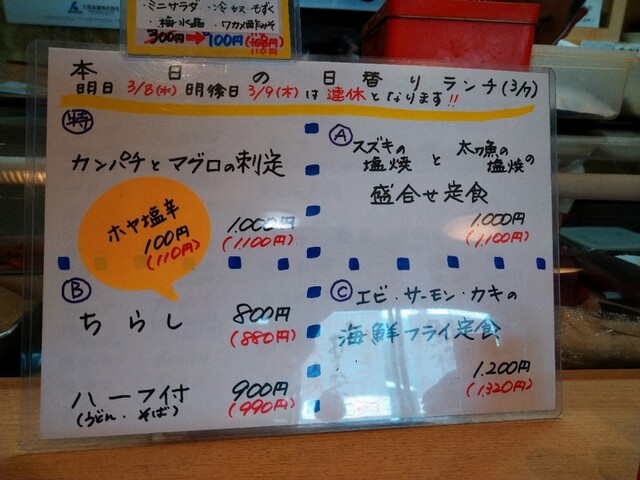 ・ミニサラダ ・冷奴 ・もずく
・梅水晶 ・ワカメ酢みそ
300円→100円(税込110円)
本日の日替りランチ(3/7)
明日3/8(水)明後日3/9(木)は連休となります!!
特
カンパチとマグロの刺定
1.000円
(1.100円)
ホヤ塩辛
100円
(110円)
A
スズキの塩焼と太刀魚の塩焼の
盛合せ定食
1.000円
(1.100円)
B
ちらし
800円
(880円)
ハーフ付
(うどん・そば)
900円
(990円)
C
エビ・サーモン・カキの
海鮮フライ定食
1.200円
(1.320円)